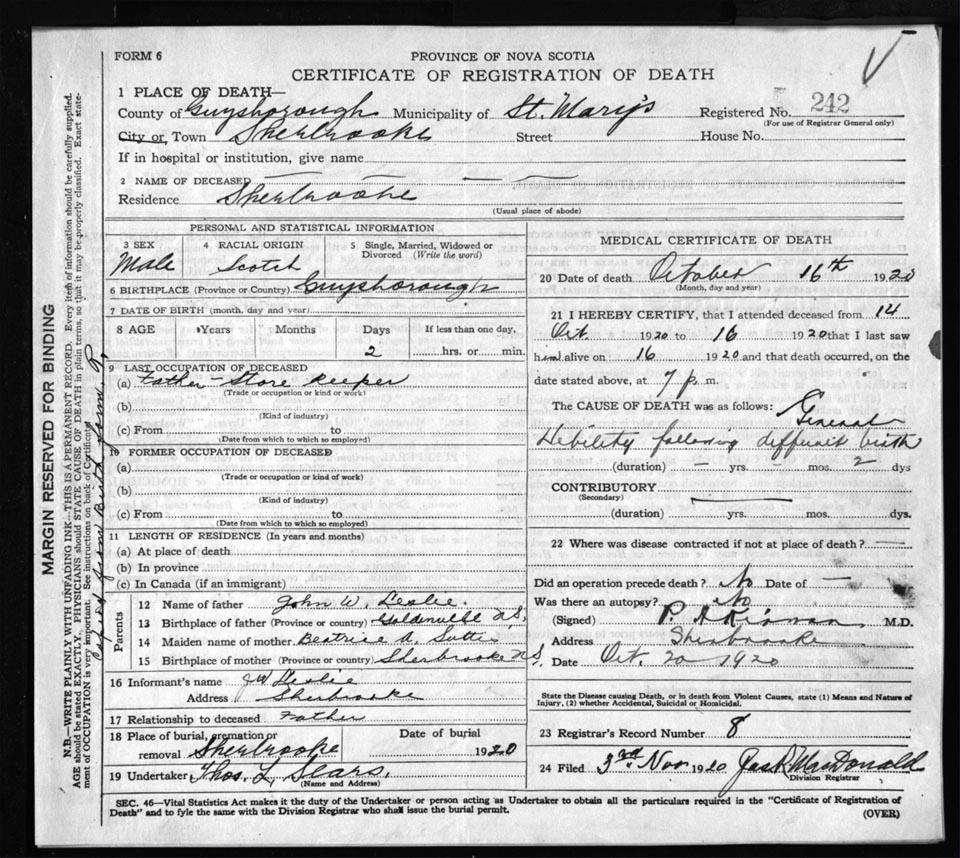 FORM 6
PROVINCE OF NOVA SCOTIA
CERTIFICATE OF REGISTRATION OF DEATH
1 PLACE OF DEATH—
County of Guysborough Municipality of St. Mary's Registered No. 242
(For use of Registrar General only)
City or Town Sherbrooke Street House No.
If in hospital or institution, give name
2 NAME OF DECEASED — — — —
Residence Sherbrooke
(Usual place of abode)
PERSONAL AND STATISTICAL INFORMATION
3 SEX 4 RACIAL ORIGIN 5 Single, Married, Widowed or Divorced (Write the word)
Male Scotch
6 BIRTHPLACE (Province or Country) Guysborough
7 DATE OF BIRTH (month, day and year)
8 AGE Years Months Days If less than one day,
2 hrs. or min.
9 LAST OCCUPATION OF DECEASED
(a) Father - Store Keeper
(Trade or occupation or kind or work)
(b)
(Kind of industry)
(c) From to
(Date from which to which so employed)
10 FORMER OCCUPATION OF DECEASED
(a)
(Trade or occupation or kind of work)
(b)
(Kind of industry)
(c) From to
(Date from which to which so employed)
11 LENGTH OF RESIDENCE (In years and months)
(a) At place of death
(b) In province
(c) In Canada (if an immigrant)
Parents
12 Name of father John W. Leslie.
13 Birthplace of father (Province or country) Goldenville N.S.
14 Maiden name of mother Beatrice A.
15 Birthplace of mother (Province or country) Sherbrooke N.S.
16 Informant's name J W Leslie
Address Sherbrooke
17 Relationship to deceased Father
18 Place of burial, cremation or Date of burial
removal Sherbrooke 1920
19 Undertaker Thos. L. Sears.
(Name and Address)
MEDICAL CERTIFICATE OF DEATH
20 Date of death October 16th 1920
(Month, day and year)
21 I HEREBY CERTIFY, that I attended deceased from 14
Oct. 1920 to 16 1920 that I last saw
him alive on 16 1920 and that death occurred, on the
date stated above, at 7 p. m.
The CAUSE OF DEATH was as follows: General
Debility following difficult birth
(duration) — yrs. — mos. 2 dys
CONTRIBUTORY
(Secondary)
(duration) yrs. mos. dys.
22 Where was disease contracted if not at place of death? —
Did an operation precede death? No Date of —
Was there an autopsy? No
(Signed) P. A. M.D.
Address Sherbrooke
Date Oct. 20 - 1920
State the Disease causing Death, or in death from Violent Causes, state (1) Means and Nature of
Injury, (2) whether Accidental, Suicidal or Homicidal.
23 Registrar's Record Number 8
24 Filed 3rd Nov 1920 Jas R MacDonald
Division Registrar
SEC. 46—Vital Statistics Act makes it the duty of the Undertaker or person acting as Undertaker to obtain all the particulars required in the "Certificate of Registration of
Death" and to fyle the same with the Division Registrar who shall issue the burial permit.
(OVER)
MARGIN RESERVED FOR BINDING
N.B.—WRITE PLAINLY WITH UNFADING INK—THIS IS A PERMANENT RECORD. Every item of information should be carefully supplied.
AGE should be stated EXACTLY. PHYSICIANS should STATE CAUSE OF DEATH in plain terms, so that it may be properly classified. Exact state-
ment of OCCUPATION is very important. See instructions on back of Certificate.
Copied from Birth form